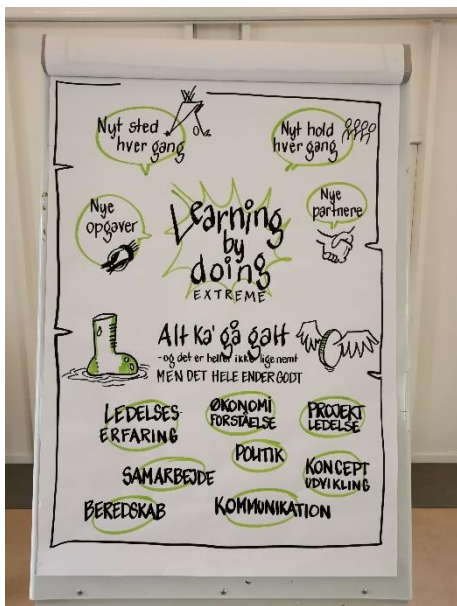 Nyt sted
hver gang
Nyt hold
hver gang
Nye
opgaver
Learning
by
doing
EXTREME
Nye
partnere
Alt Ka' gå galt
- og det er heller ikke lige nemt
MEN DET HELE ENDER GODT
LEDELSES
ERFARING
ØKONOMI
FORSTÅELSE
PROJEKT
LEDELSE
POLITIK
SAMARBEJDE
KONCEPT
UDVIKLING
BEREDSKAB
KOMMUNIKATION